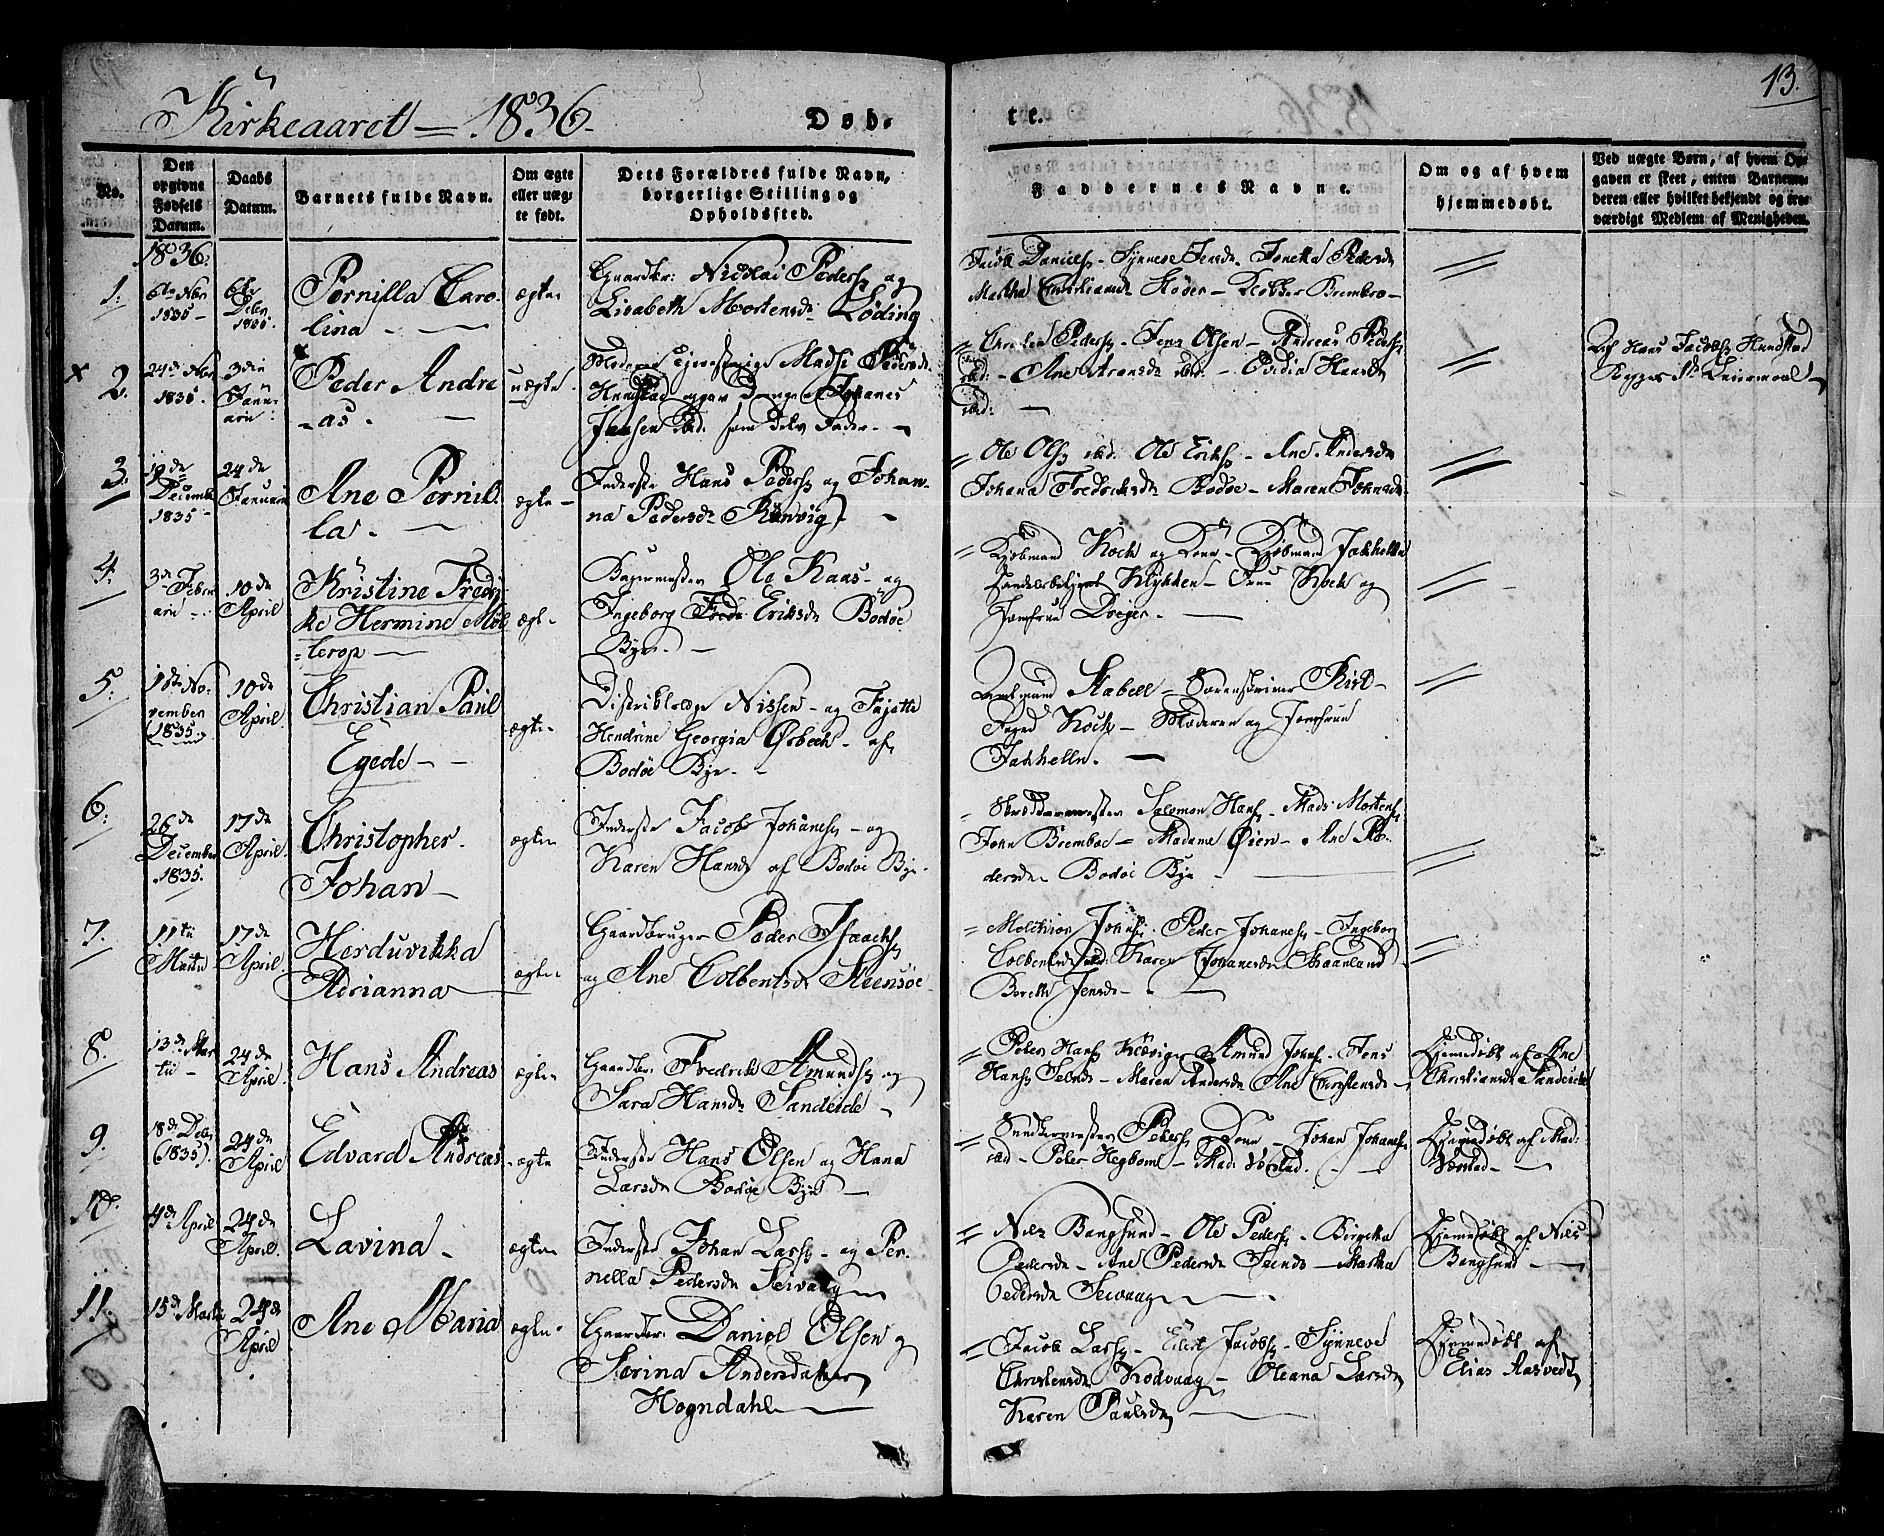 13.
Kirkeaaret — 1836.
Døb-
te.
No.
Den
opgivne
Fødsels
Datum.
Daabs
Datum.
Barnets fulde Navn.
Om ægte
eller uæg-
te født.
Dets Forældres fulde Navn,
borgerlige Stilling og
Opholdssted.
Faddernes Navne.
Om og af hvem
hjemmedøbt.
Ved uægte Børn, af hvem Op-
gaven er skeet, enten Barnemo-
deren eller hvilket bekjendt og tro-
værdigt Medlem af Menigheden.
1836.
1.
6te Nbr
1835 —
6te
Debr
1835.
Pernilla Caro-
lina —
ægte
Gaardbr: Nicolai Peders. og
Lisabeth Mortensdr Løding
Jacob Daniels. — Synneve Jensdr — Peders
Martha Støder — Brembo —
x 2.
24de Nbr
1835.
3die
Janu-
arii
Peder Andre
-as. —
uægte.
Moderen Madsi Pedersdr
Hundstad Johanes
Jensen ibd. som Fader. —
Pedersen — Jens Olsen — Andreas Peders.
ibd: — Ane ibd: — Hansdr
ibd: —
Af Hans Jacobs. Hundstad
Leiermaal
3.
19de
Decembr
1835 —
24de
Januarii
Ane Pernil-
la. —
ægte —
Inderste Hans Peders. og Johan-
na Pedersdr Rønvig. —
Ole Ols. ibd. Ole Eriks. — Ane Andersdr
Johana Fredriksdr Bodøe — Maren Johnsdr
4.
3de Febru
arii —
10de
April
Kristine Fredri-
ke Hermine Møl-
-lerop —
ægte
Bagermester Ole Kaas — og
Ingeborg Eriksdr Bodøe
Bye. —
Kjøbmand Koch og Kone — Kjøbmand Jakhelln
Handelsbetjent Klykken — Frue Koch og
Jomfrue Dreyer. —
5.
1ste No-
vember
(1835.)
10de
April.
Christian Paul
Egede —
ægte
Distriktslæge Nissen — og
Hendrine Georgia Ørbech — af
Bodøe Bye. —
Amtmand Stabell — Sorenskriver
Foged Koch — Moderen og Jomfrue
Jakhelln. —
6.
26de
December
1835.
17de
April.
Christopher
Johan —
ægte
Inderste Jacob Johanes. — og
Karen Hansdr af Bodøe Bye.
Skræddermester Salomon Hans. — Mads Mortens.
John Brembo — Madame Øien — Ane Pe-
dersdr — Bodøe Bye —
7.
11te
Martii
17de
April
Herduvikka
Adrianna
ægte
Gaardbruger Peder Isaachs.
og Ane Colbentsdr Steensøe
Melchior Johns. Peder Johanes. — Ingeborg
Colbentsdr Karen Johanesdr Straanland
Berith Jensdr —
8.
13de Mar
tii —
24de
April.
Hans Andreas
ægte
Gaardbr. Fredrik Amunds. og
Sara Hansdr Sandeide —
Peter Hans. Amund Johns. Jens
Hans. — Maren Andersdr Ane Christensdr —
Hjemedøbt af Ane
Christiansdr Sandeide
9.
18de Debr
(1835).
24de
April
Edvard Andreas
ægte
Inderste Hans Olsen og Hana
Larsdr Bodøe Bye —
Peders. Kone — Johan Johanes.
ibd — Peter Hegbom — Mad:
Hjemedøbt af Mad:
10.
4de April
24de
April.
Lavina —
ægte
Inderste Johan Lars. — og Per-
nella Pedersdr Seivaag
Niels Bangsund — Ole Peders. — Birgitha
Pedersdr — Ane Pedersdr — Martha
Pedersdr Seivaag —
Hjemedøbt af Niels
Bangsund —
11.
15de Martii
24de
April
Ane Maria
ægte
Gaardbr: Daniel Olsen og
Serina Andersdatter
Hogndahl —
Jacob Lars. — Eilert Jacobs. — Synneve
Christensdr Kodvaag — Oleana Larsdr
Karen Paulsdr —
Hjemedøbt af
Elias Aasvedt